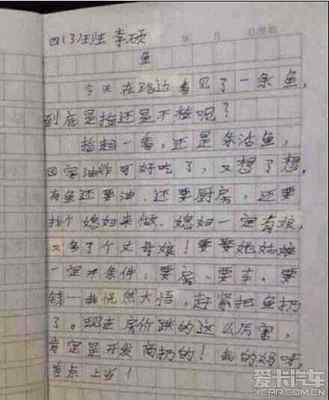 四(3)班 李硕
年 月 日
鱼
今天在路边看见了一条鱼，
到底是捡还是不捡呢？
捡起一看，还是条活鱼，
回家油炸可好吃了，又想了想，
有鱼还要油，还要厨房，还要
找个媳妇来做，媳妇一定有娘，
又多了个丈母娘！要要她姑娘
一定开条件，要房、要车、要
钱—我恍然大悟，赶紧把鱼扔
了。现在房价跌的这么厉害，
肯定是开发商扔的！我的妈呀
差点上当！
爱卡汽车
XCAR.COM.CN